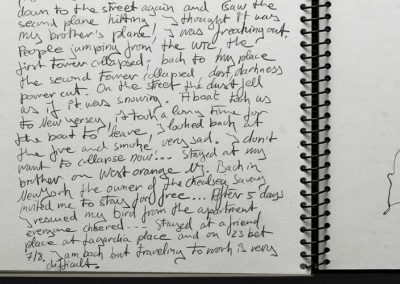 down to the street again and saw the
second plane hitting, I thought it was
my brother's plane, I was freaking out.
People jumping from the WTC, the
first tower collapsed, back to my place
the second tower collapsed dust, darkness
power cut. On the street the dust fell
as if it was snowing. A boat took us
to New Jersey, it took a long time for
the boat to leave, I looked back at
the fire and smoke, very sad. I don't
want to collapse now... Stayed at my
brother on West orange NJ. Back in
New York the owner of the Chelsea Savoy
invited me to stay for free... After 5 days
I rescued my bird from the apartment
everyone cheered... Stayed at a friend
place at Laguardia place and on 23 bet
7/8. I am back but traveling to work is very
difficult.